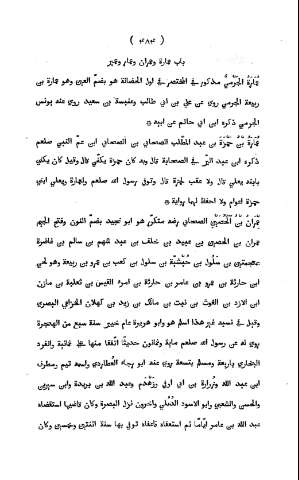 ( ٤٨٤ )
باب عمارة وعمران وعمار وعمير
عُمَارَةُ الجَرْميُّ مذكور فى المختصر فى اول الحضانة هو بضمّ العين وهو عمارة بن
ربيعة الجرمي روى عن على بن ابى طالب وعنبسة بن سعيد روى عنه يونس
الجرمي ذكره ابن ابى حاتم عن ابيه *
عُمَارَةُ بْنُ حَمْزَةَ بن عبد المطّلب الصحابى بن الصحابى ابن عمّ النبى صلعم
ذكره ابن عبد البرّ فى الصحابة قال وقد كان حمزة يكنّى قال وقيل كان يكنى
بابنه يعلى قال ولا عقب لحمزة قال وتوفى رسول الله صلعم ولعمارة ويعلى ابنى
حمزة اعوام ولا احفظ لهما رواية *
عِمْرَانُ بْنُ الحُصَيْنِ الصحابى رضه متكرّر هو ابو نجيد بضمّ النون وفتح الجيم
عمران بن الحصين بن عبيد بن خلف بن عبد نهم بن سالم بن غاضرة
بن سَلُول بن حُبْشِيَّة بن سلول بن كعب بن عمرو بن ربيعة وهو لحى
ابن حارثة بن عمرو بن عامر بن حارثة بن امرء القيس بن ثعلبة بن مازن
ابن الازد بن الغوث بن نبت بن مالك بن زيد بن كهلان الخزاعى البصرى
وقيل فى نسبه غير هذا اسلم هو وابو هريرة عام خيبر سنة سبع من الهجرة
روى له عن رسول الله صلعم ماية وثمانون حديثا اتّفقا منها على ثمانية وانفرد
البخارى باربعة ومسلم بتسعة روى عنه ابو رجاء العُطاردى واسمه تيم ومطرف
ابن عبد الله وزرارة بن ابى اوفى وزَهْدَم وعبد الله بن بريدة وابن سيرين
والحسن والشعبى وابو الاسود الدُّئلى واخرون نزل البصرة وكان قاضيها استقضاه
عبد الله بن عامر ايّاما ثم استعفاه فاعفاه توفى بها سنة اثنتين وخمسين وكان